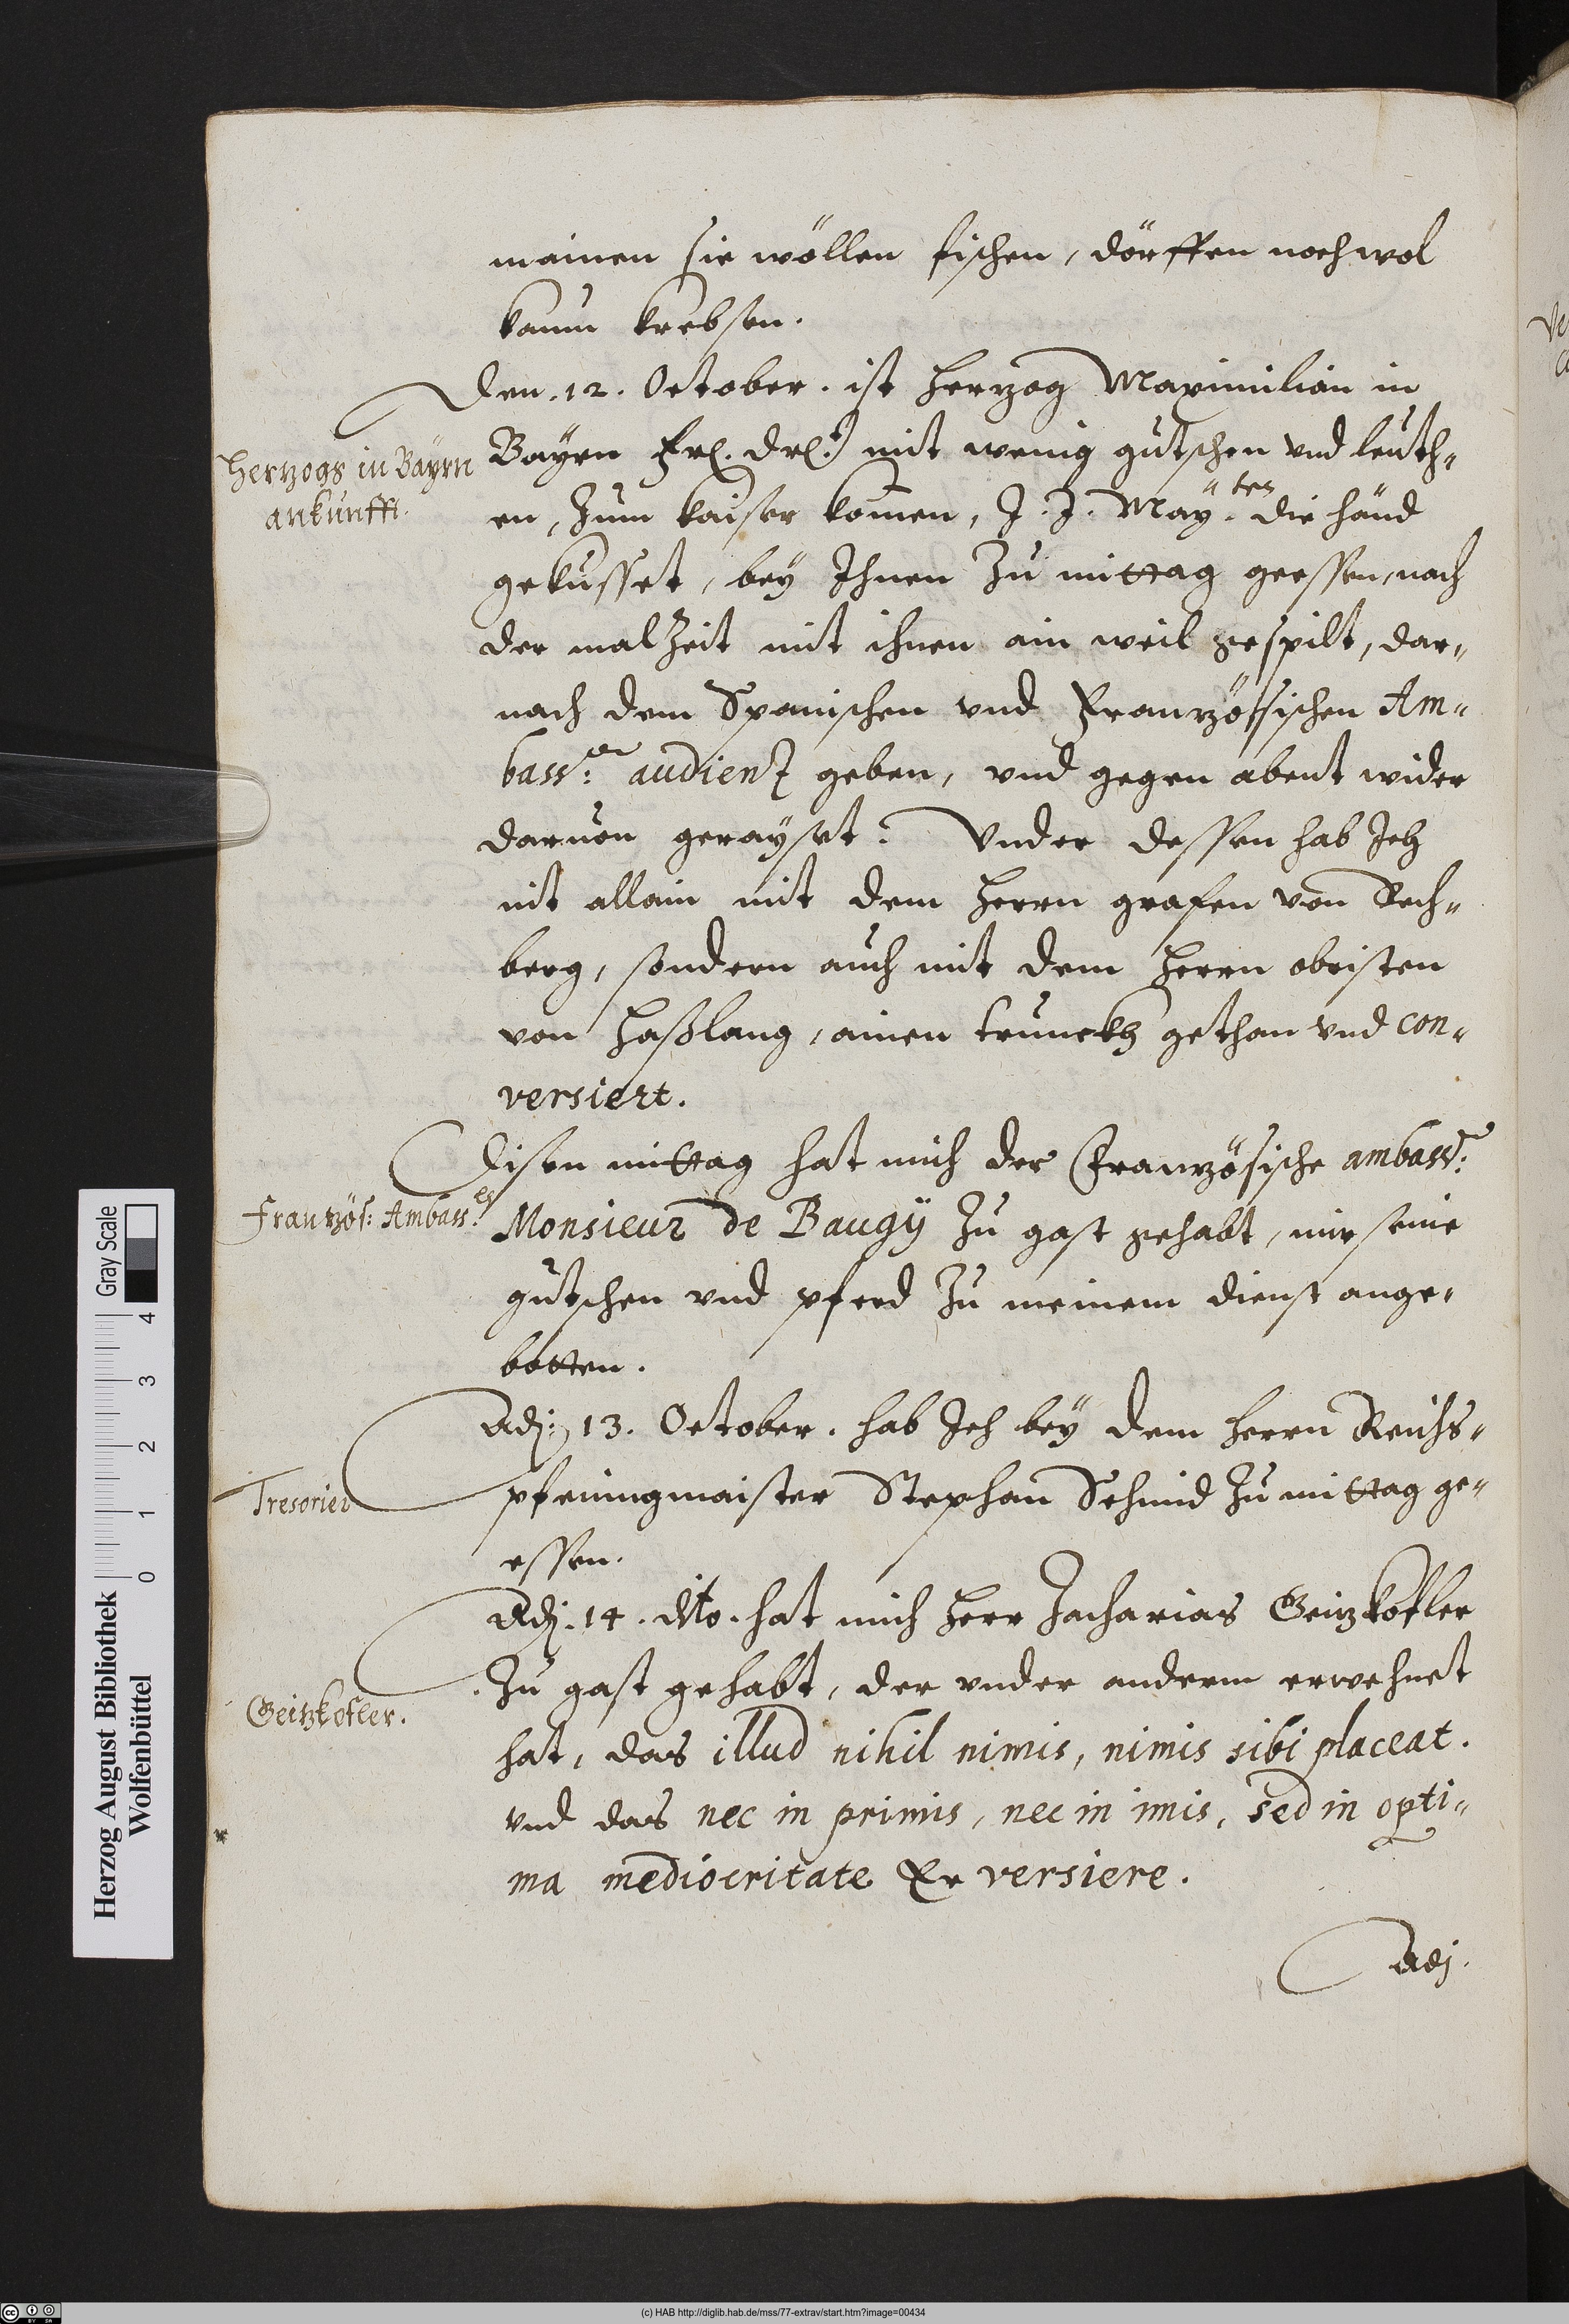 mainen sie wöllen fischen, dörffen noch wol
kaum krebsen.
Den. 12. October. ist Herzog Maximilian in
Hertzogs in Bayrn
ankunfft.
Bayrn Frl. Drl.t mit wenig gutschen vnd leuth-
en, zum Kaiser komen, J. J. May.tes die händ
geküsset, bey Ihnen zu mittag geessen, nach
der malzeit mit ihnen ain weil gespilt, dar-
nach dem Spanischen vnd Französischen Am-
bass.en audientz geben, vnd gegen abent wider
daruon gerayset. Vnder dessen hab Ich
nit allain mit dem Herrn grafen von Rech-
berg, sondern auch mit dem Herrn obristen
von Haßlang, ainen trunckh gethan vnd con-
versiert.
Disen mittag hat mich der Französische ambass.r
Frantzös: Ambass.es
Monsieur de Baugÿ zu gast gehabt, mir seine
gutschen vnd pferd zu meinem dienst ange-
botten.
Adj. 13. October. hab Ich bey dem Herrn Reichs-
Tresorier
pfenningmaister Stephan Schmid zu mittag ge-
essen.
Adj. 14. dito. hat mich Herr Zacharias Geizkofler
Geitzkofler.
zu gast gehabt, der vnder anderm erwehnet
hat, das illud nihil nimis, nimis sibi placeat.
vnd das nec in primis, nec in imis, sed in opti-
ma mediocritate Er versiere.
Adj.
Gray Scale
0 1 2 3 4
Herzog August Bibliothek
Wolfenbüttel
(c) HAB http://diglib.hab.de/mss/77-extrav/start.htm?image=00434